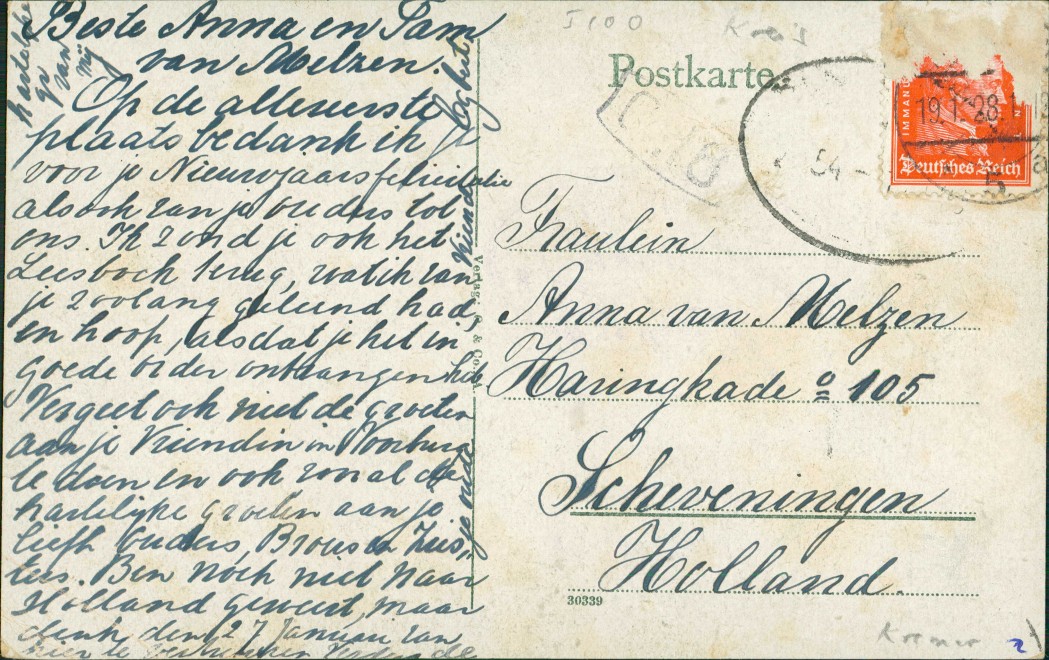 Beste Anna en Fam
van Melzen.
Op de alleeerste
plaats bedank ik je
voor je Nieuwjaarsfelicitatie
alsook van je ouders tot
ons. Ik zond je ook het
Leesboek terug, wat ik van
je zoolang geleend had,
en hoop, alsdat je het in
goede order ontvangen heb
Vergeet ook niet de groeten
aan je Vriendin in Voorburg
te doen en ook vooral de
hartelijke groeten aan je
liefh ouders, Broers en Zus,
ters. Ben noch niet naar
Holland geweest, maar
denk den 27 Januari van
hier te vertrekken
hartelijke
gr
van
mij
Vriend
je oude
J 100
Kreis
Postkarte
IMMANU
19.1.28.1
Deutsches Reich
54
Fraulein
Anna van Melzen
Haringkade o 105
Scheveningen
Holland.
Verlag:
30339
Kremer
2